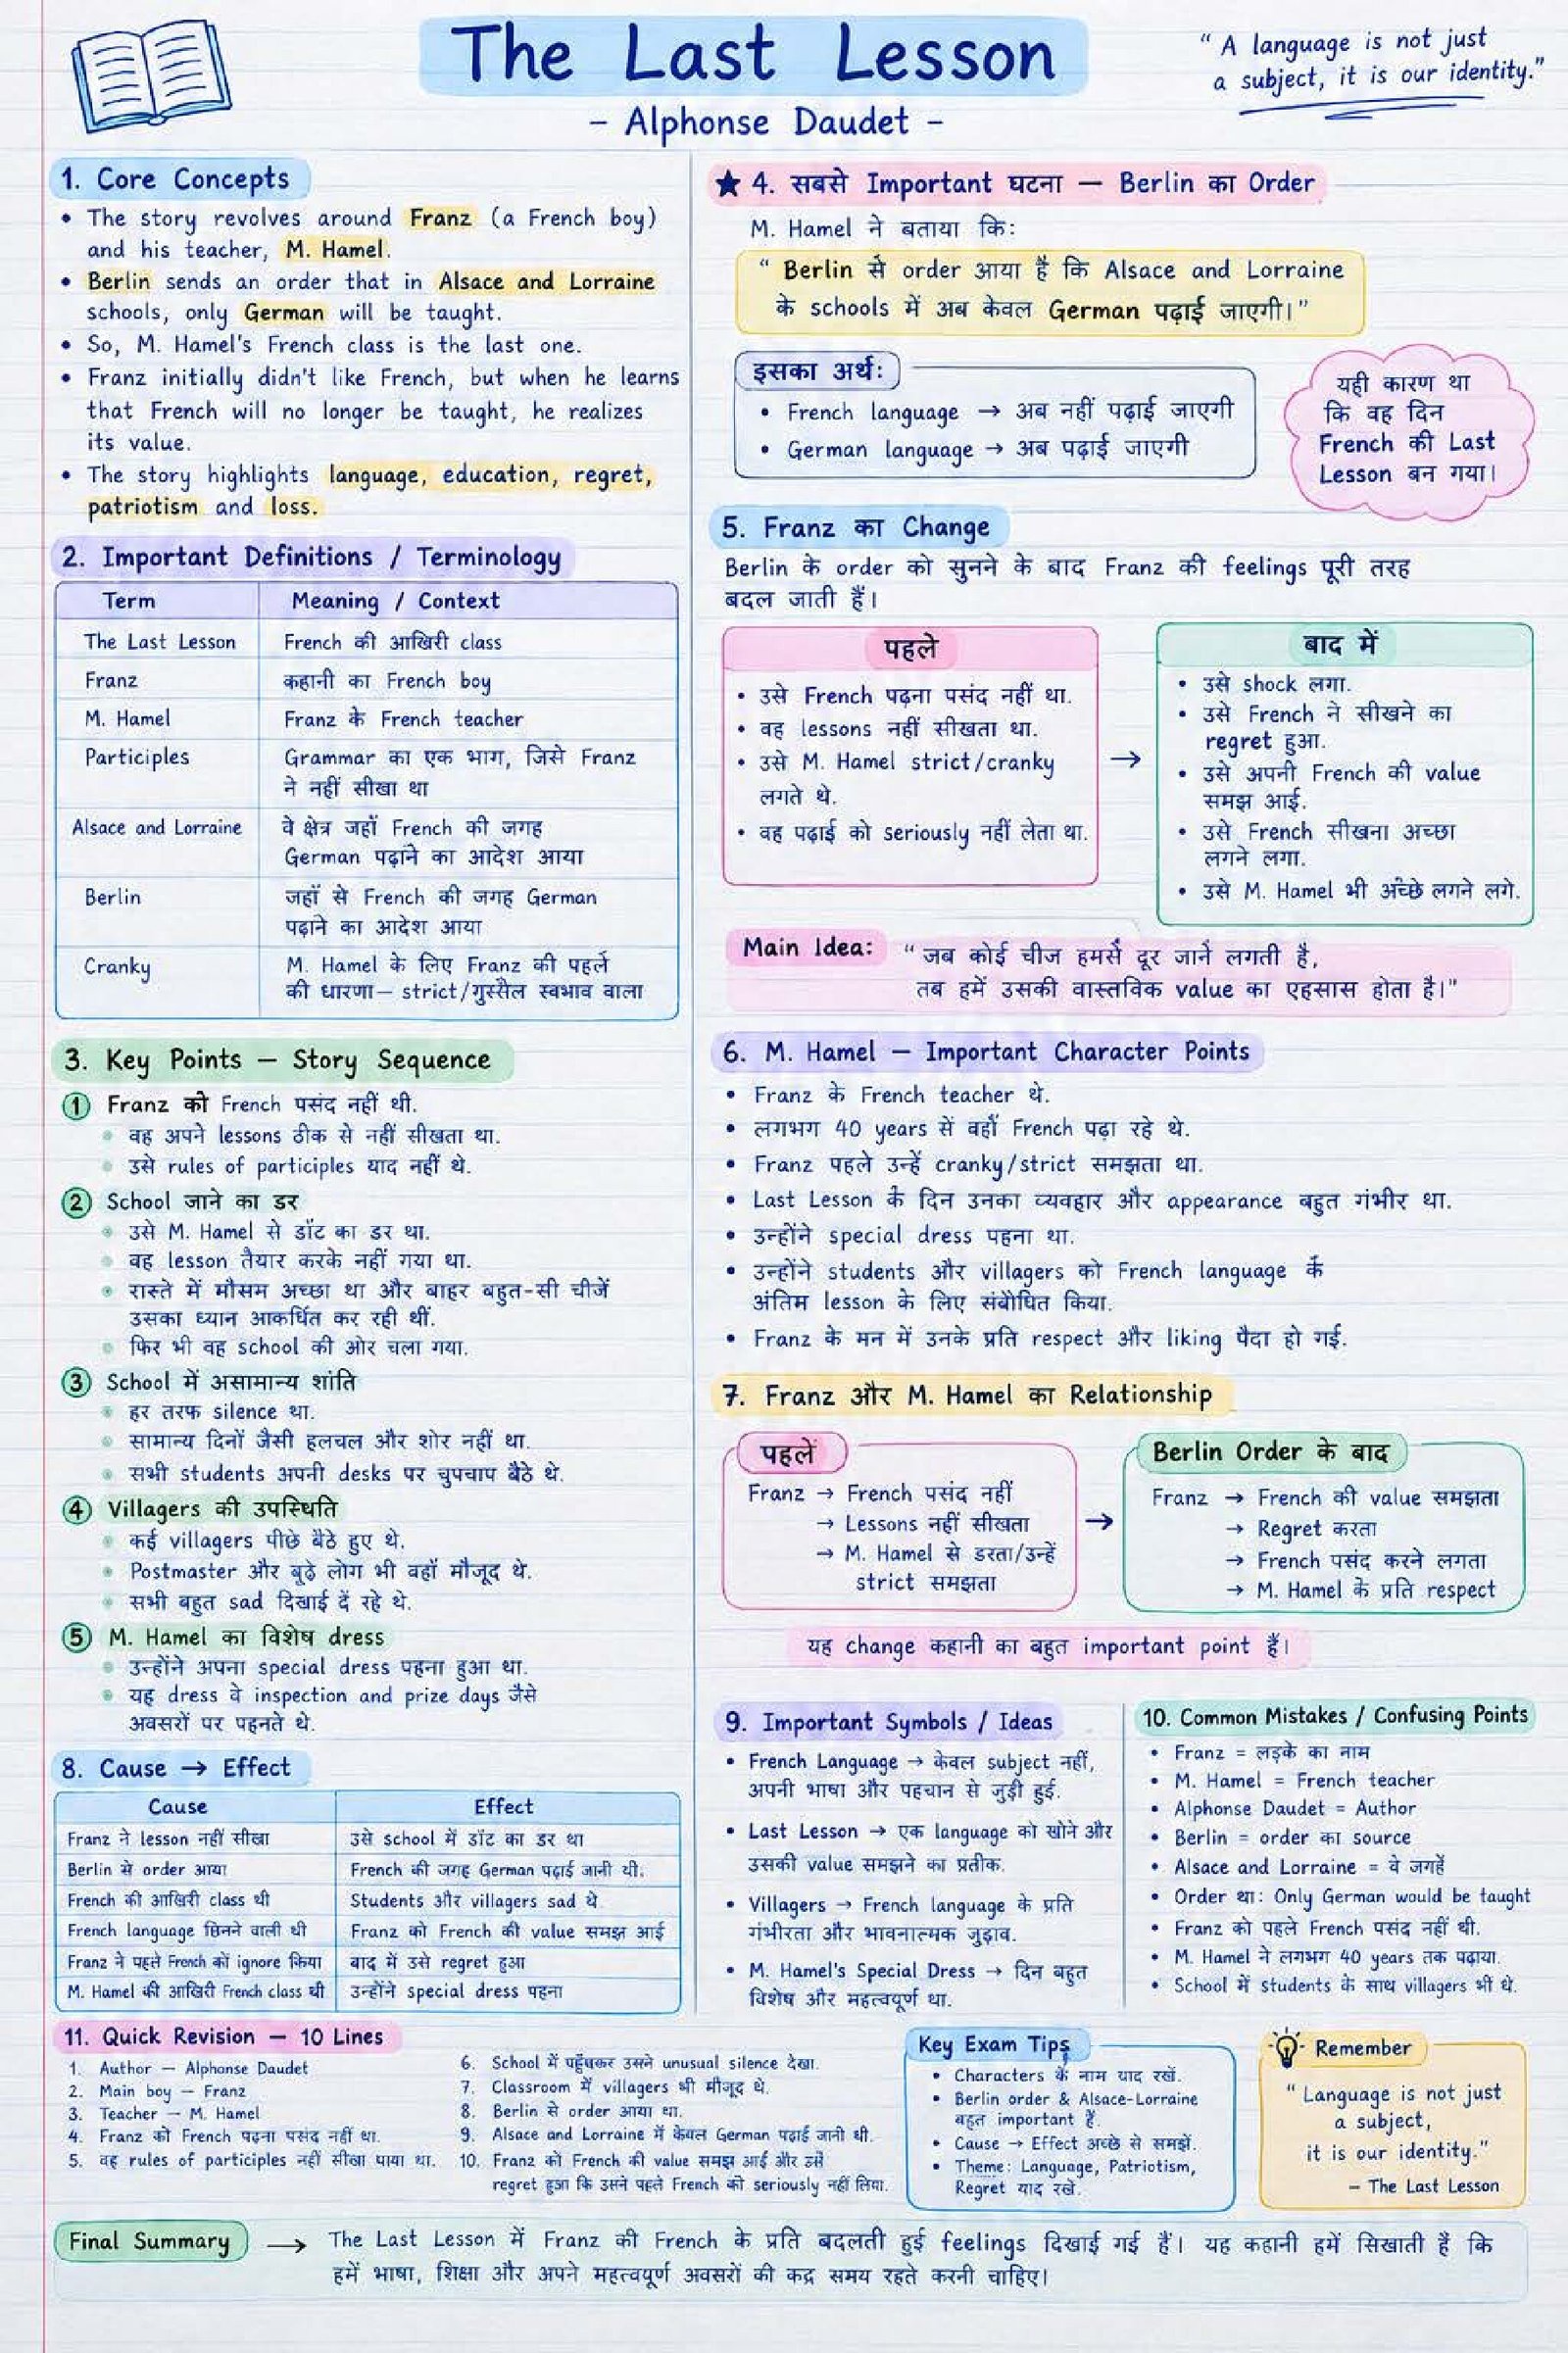 The Last Lesson
– Alphonse Daudet –
“ A language is not just
a subject, it is our identity.”
1. Core Concepts
• The story revolves around Franz (a French boy)
and his teacher, M. Hamel.
• Berlin sends an order that in Alsace and Lorraine
schools, only German will be taught.
• So, M. Hamel's French class is the last one.
• Franz initially didn't like French, but when he learns
that French will no longer be taught, he realizes
its value.
• The story highlights language, education, regret,
patriotism and loss.
2. Important Definitions / Terminology
Term Meaning / Context
The Last Lesson French की आखिरी class
Franz कहानी का French boy
M. Hamel Franz के French teacher
Participles Grammar का एक भाग, जिसे Franz
ने नहीं सीखा था
Alsace and Lorraine वे क्षेत्र जहाँ French की जगह
German पढ़ाने का आदेश आया
Berlin जहाँ से French की जगह German
पढ़ाने का आदेश आया
Cranky M. Hamel के लिए Franz की पहले
की धारणा— strict/गुस्सैल स्वभाव वाला
3. Key Points — Story Sequence
① Franz को French पसंद नहीं थी.
वह अपने lessons ठीक से नहीं सीखता था.
उसे rules of participles याद नहीं थे.
② School जाने का डर
उसे M. Hamel से डाँट का डर था.
वह lesson तैयार करके नहीं गया था.
रास्ते में मौसम अच्छा था और बाहर बहुत-सी चीजें
उसका ध्यान आकर्षित कर रही थीं.
फिर भी वह school की ओर चला गया.
③ School में असामान्य शांति
हर तरफ silence था.
सामान्य दिनों जैसी हलचल और शोर नहीं था.
सभी students अपनी desks पर चुपचाप बैठे थे.
④ Villagers की उपस्थिति
कई villagers पीछे बैठे हुए थे.
Postmaster और बूढ़े लोग भी वहाँ मौजूद थे.
सभी बहुत sad दिखाई दे रहे थे.
⑤ M. Hamel का विशेष dress
उन्होंने अपना special dress पहना हुआ था.
यह dress वे inspection and prize days जैसे
अवसरों पर पहनते थे.
8. Cause → Effect
Cause Effect
Franz ने lesson नहीं सीखा उसे school में डाँट का डर था
Berlin से order आया French की जगह German पढ़ाई जानी थी.
French की आखिरी class थी Students और villagers sad थे
French language छिनने वाली थी Franz को French की value समझ आई
Franz ने पहले French को ignore किया बाद में उसे regret हुआ
M. Hamel की आखिरी French class थी उन्होंने special dress पहना
★ 4. सबसे Important घटना — Berlin का Order
M. Hamel ने बताया कि:
“ Berlin से order आया है कि Alsace and Lorraine
के schools में अब केवल German पढ़ाई जाएगी।”
इसका अर्थ:
• French language → अब नहीं पढ़ाई जाएगी
• German language → अब पढ़ाई जाएगी
यही कारण था
कि वह दिन
French की Last
Lesson बन गया।
5. Franz का Change
Berlin के order को सुनने के बाद Franz की feelings पूरी तरह
बदल जाती हैं।
पहले
• उसे French पढ़ना पसंद नहीं था.
• वह lessons नहीं सीखता था.
• उसे M. Hamel strict/cranky
लगते थे.
• वह पढ़ाई को seriously नहीं लेता था.
→
बाद में
• उसे shock लगा.
• उसे French ने सीखने का
regret हुआ.
• उसे अपनी French की value
समझ आई.
• उसे French सीखना अच्छा
लगने लगा.
• उसे M. Hamel भी अच्छे लगने लगे.
Main Idea: “ जब कोई चीज हमसे दूर जाने लगती है,
तब हमें उसकी वास्तविक value का एहसास होता है।”
6. M. Hamel — Important Character Points
• Franz के French teacher थे.
• लगभग 40 years से वहाँ French पढ़ा रहे थे.
• Franz पहले उन्हें cranky/strict समझता था.
• Last Lesson के दिन उनका व्यवहार और appearance बहुत गंभीर था.
• उन्होंने special dress पहना था.
• उन्होंने students और villagers को French language के
अंतिम lesson के लिए संबोधित किया.
• Franz के मन में उनके प्रति respect और liking पैदा हो गई.
7. Franz और M. Hamel का Relationship
पहले
Franz → French पसंद नहीं
→ Lessons नहीं सीखता
→ M. Hamel से डरता/उन्हें
strict समझता
→
Berlin Order के बाद
Franz → French की value समझता
→ Regret करता
→ French पसंद करने लगता
→ M. Hamel के प्रति respect
यह change कहानी का बहुत important point है।
9. Important Symbols / Ideas
• French Language → केवल subject नहीं,
अपनी भाषा और पहचान से जुड़ी हुई.
• Last Lesson → एक language को खोने और
उसकी value समझने का प्रतीक.
• Villagers → French language के प्रति
गंभीरता और भावनात्मक जुड़ाव.
• M. Hamel's Special Dress → दिन बहुत
विशेष और महत्वपूर्ण था.
10. Common Mistakes / Confusing Points
• Franz = लड़के का नाम
• M. Hamel = French teacher
• Alphonse Daudet = Author
• Berlin = order का source
• Alsace and Lorraine = वे जगहें
• Order था: Only German would be taught
• Franz को पहले French पसंद नहीं थी.
• M. Hamel ने लगभग 40 years तक पढ़ाया.
• School में students के साथ villagers भी थे.
11. Quick Revision — 10 Lines
1. Author — Alphonse Daudet
2. Main boy — Franz
3. Teacher — M. Hamel
4. Franz को French पढ़ना पसंद नहीं था.
5. वह rules of participles नहीं सीखा पाया था.
6. School में पहुँचकर उसने unusual silence देखा.
7. Classroom में villagers भी मौजूद थे.
8. Berlin से order आया था.
9. Alsace and Lorraine में केवल German पढ़ाई जानी थी.
10. Franz को French की value समझ आई और उसे
regret हुआ कि उसने पहले French को seriously नहीं लिया.
Key Exam Tips
• Characters के नाम याद रखें.
• Berlin order & Alsace-Lorraine
बहुत important हैं.
• Cause → Effect अच्छे से समझें.
• Theme: Language, Patriotism,
Regret याद रखें.
Remember
“ Language is not just
a subject,
it is our identity.”
– The Last Lesson
Final Summary → The Last Lesson में Franz की French के प्रति बदलती हुई feelings दिखाई गई हैं। यह कहानी हमें सिखाती है कि
हमें भाषा, शिक्षा और अपने महत्वपूर्ण अवसरों की कद्र समय रहते करनी चाहिए।